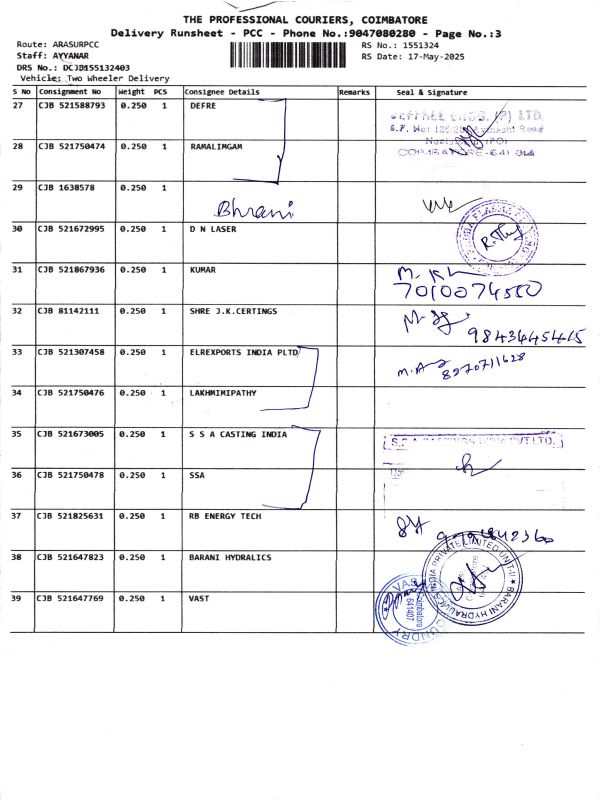 THE PROFESSIONAL COURIERS, COIMBATORE
Delivery Runsheet - PCC - Phone No.:9047080280 - Page No.:3
Route: ARASURPCC RS No.: 1551324
Staff: AYYANAR RS Date: 17-May-2025
DRS No.: DCJB155132403
Vehicle: Two Wheeler Delivery
S No Consignment No Weight PCS Consignee Details Remarks Seal & Signature
27 CJB 521588793 0.250 1 DEFRE
(P) LTD.
28 CJB 521750474 0.250 1 RAMALIMGAM
COIMBATORE-641 014
29 CJB 1638578 0.250 1
Bhrani
30 CJB 521672995 0.250 1 D N LASER
31 CJB 521867936 0.250 1 KUMAR
7010074550
32 CJB 81142111 0.250 1 SHRE J.K.CERTINGS
9843445415
33 CJB 521307458 0.250 1 ELREXPORTS INDIA PLTD
8970711628
34 CJB 521750476 0.250 1 LAKHMIMIPATHY
35 CJB 521673005 0.250 1 S S A CASTING INDIA
36 CJB 521750478 0.250 1 SSA
37 CJB 521825631 0.250 1 RB ENERGY TECH
38 CJB 521647823 0.250 1 BARANI HYDRALICS
BARANI HYDRAULICS INDIA PRIVATE LIMITED UNIT-II
39 CJB 521647769 1 VAST
0.250
Coimbatore
641407